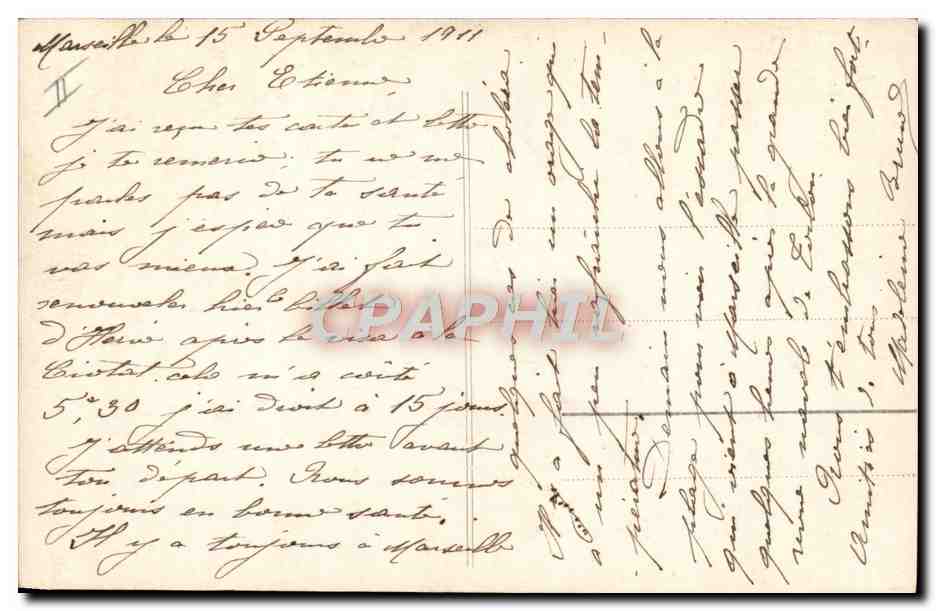 II
Marseille le 15 Septembre 1911
Cher Etienne,
J'ai reçu tes carte et lettre
je te remercie, tu ne me
parles pas de ta santé
mais j'espère que tu
vas mieux. J'ai fait
renouveler hier le billet
d'Hervé après le visa à la
Ciotat. cela m'a coûté
5,30 j'ai droit à 15 jours
J'attends une lettre avant
ton départ. Nous sommes
toujours en bonne santé.
Il y a toujours à Marseille
quelques cas de choléra
Il a fait hier un orage qui
a un peu rafraichi la tem-
pérature.
Demain nous allons à la
plage pour voir l'escadre
qui vient à Marseille passer
quelques heures après la grande
revue navale de Toulon.
Nous t'embrassons bien fort
Amitiés à tous
Madeleine Brund
CPAPHIL